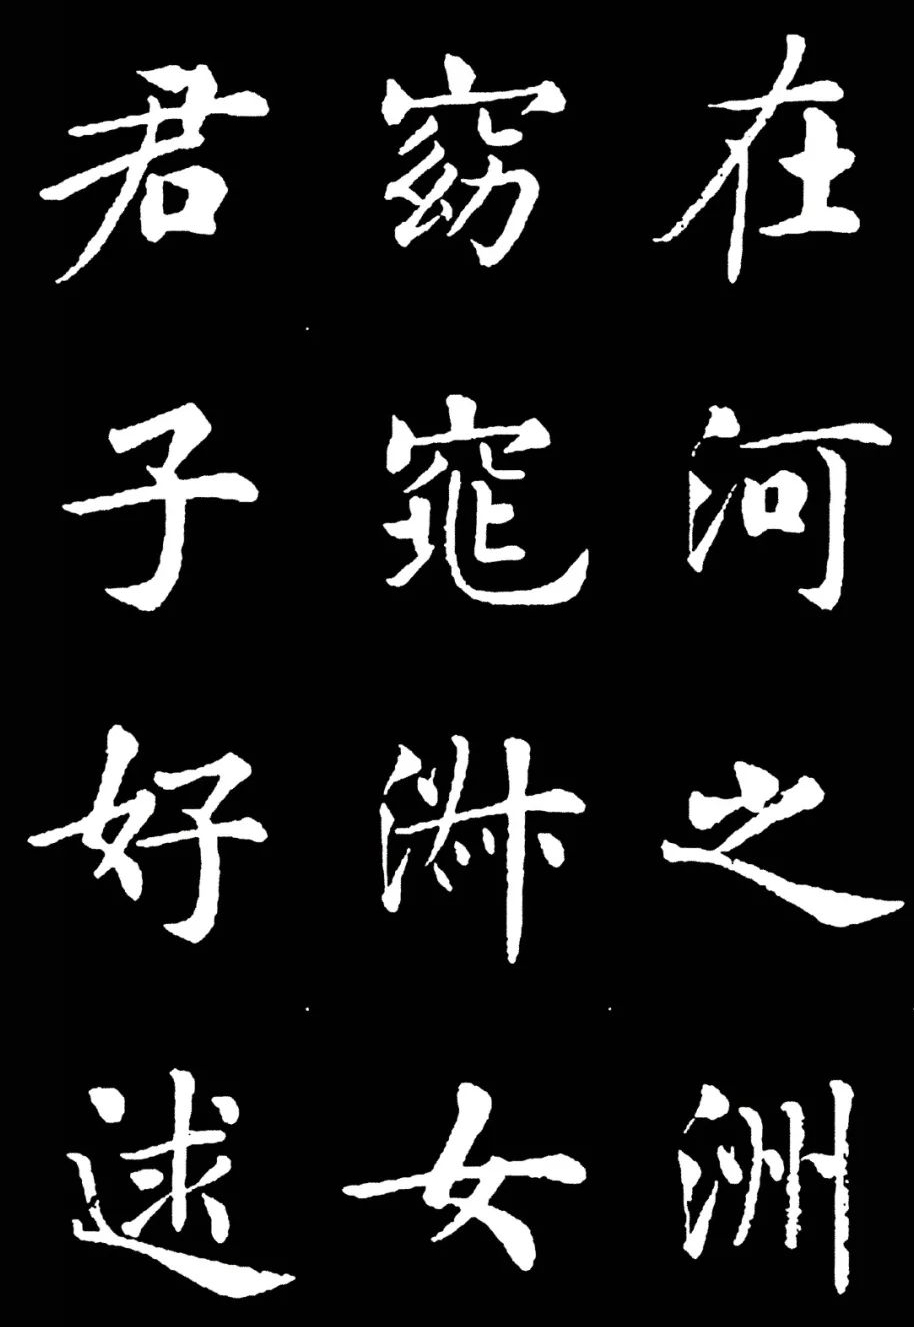 在河之洲
窈窕淑女
君子好逑